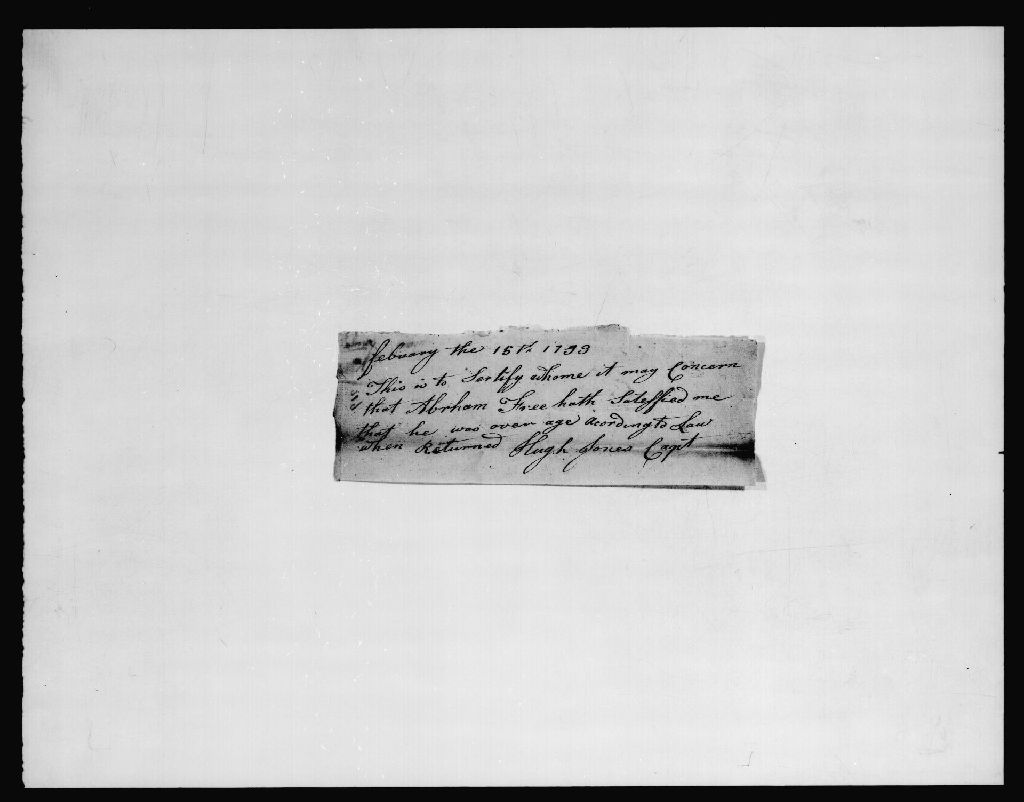 febuary the 15th 1793
This is to Sertify whome it may Concern
that Abrham Free hath Sateffied me
that he was over age acording to Law
when Returned Hugh Jones Capt